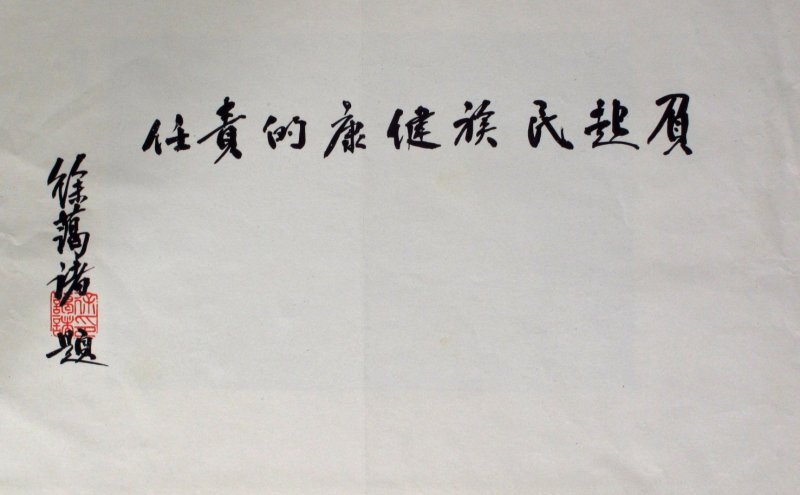 負起民族健康的責任
徐蔼诸題